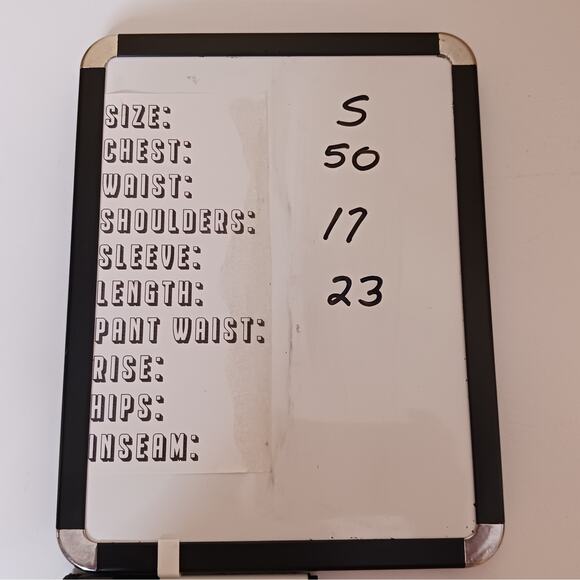 SIZE: S
CHEST: 50
WAIST:
SHOULDERS: 17
SLEEVE:
LENGTH: 23
PANT WAIST:
RISE:
HIPS:
INSEAM: